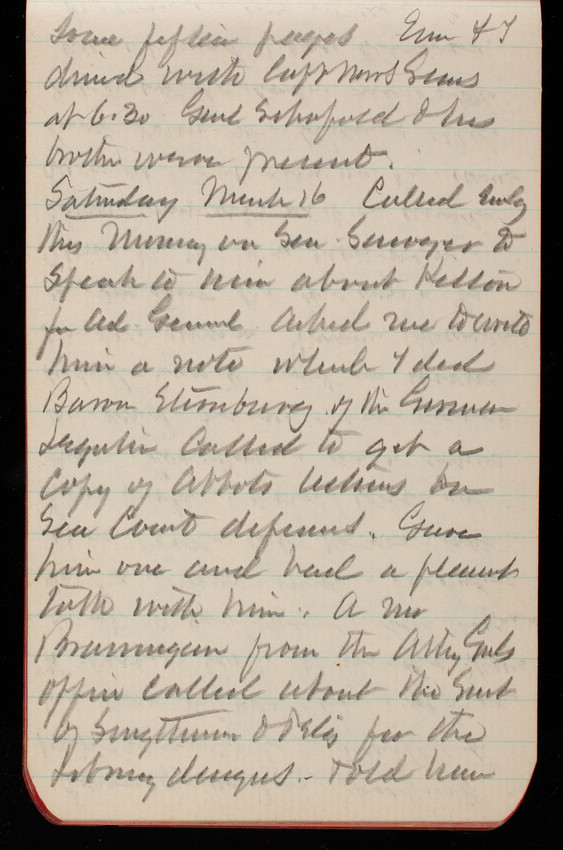 Some fifteen pages Em & I
dined with Capt
at 6.30 Genl Schofield & his
brother were present.
Saturday March 16 Called early
this Morning on Sec to
speak to him about Kelton
for Ad. General Asked me to write
him a note which I did
Baron Sternburg of the German
Legation Called to get a
Copy of Abbots lectures on
Sea Coast defenses. Gave
him one and had a pleasant
talk with him. A Mr
from the Atty Genls
office Called about the Suit
of for the
told him